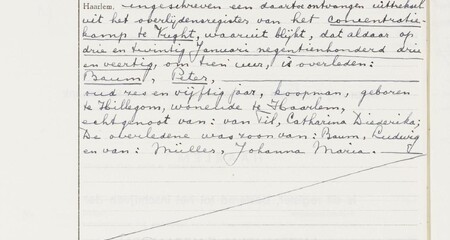 Haarlem. ingeschreven een daartoe ontvangen uittreksel
uit het overlijdensregister van het concentratie-
kamp te Vught, waaruit blijkt, dat aldaar op
drie en twintig Januari negentienhonderd drie
en veertig, om tien uur, is overleden:
Baum, Peter,
oud zes en vijftig jaar, koopman, geboren
te Hillegom, wonende te Haarlem,
echtgenoot van: van Til, Catharina Diederika;
De overledene was zoon van: Baum, Ludwig
en van: Müller, Johanna Maria.